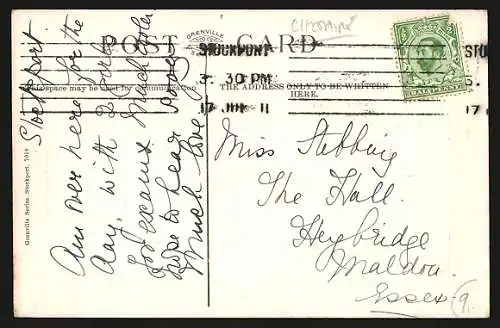 POST CARD
GRENVILLE
STOCKPORT
3. 30 PM
17 JUN 11
STO
17
HALFPENNY
space may be used for communication
THE ADDRESS ONLY TO BE WRITTEN
HERE.
Grenville Series. Stockport.
Stockport
Am over here for the
day, with 2 girls
for exams. Much cooler
hope to hear
Much love
Miss Stebbing
The Hall.
Heybridge
Maldon.
Essex